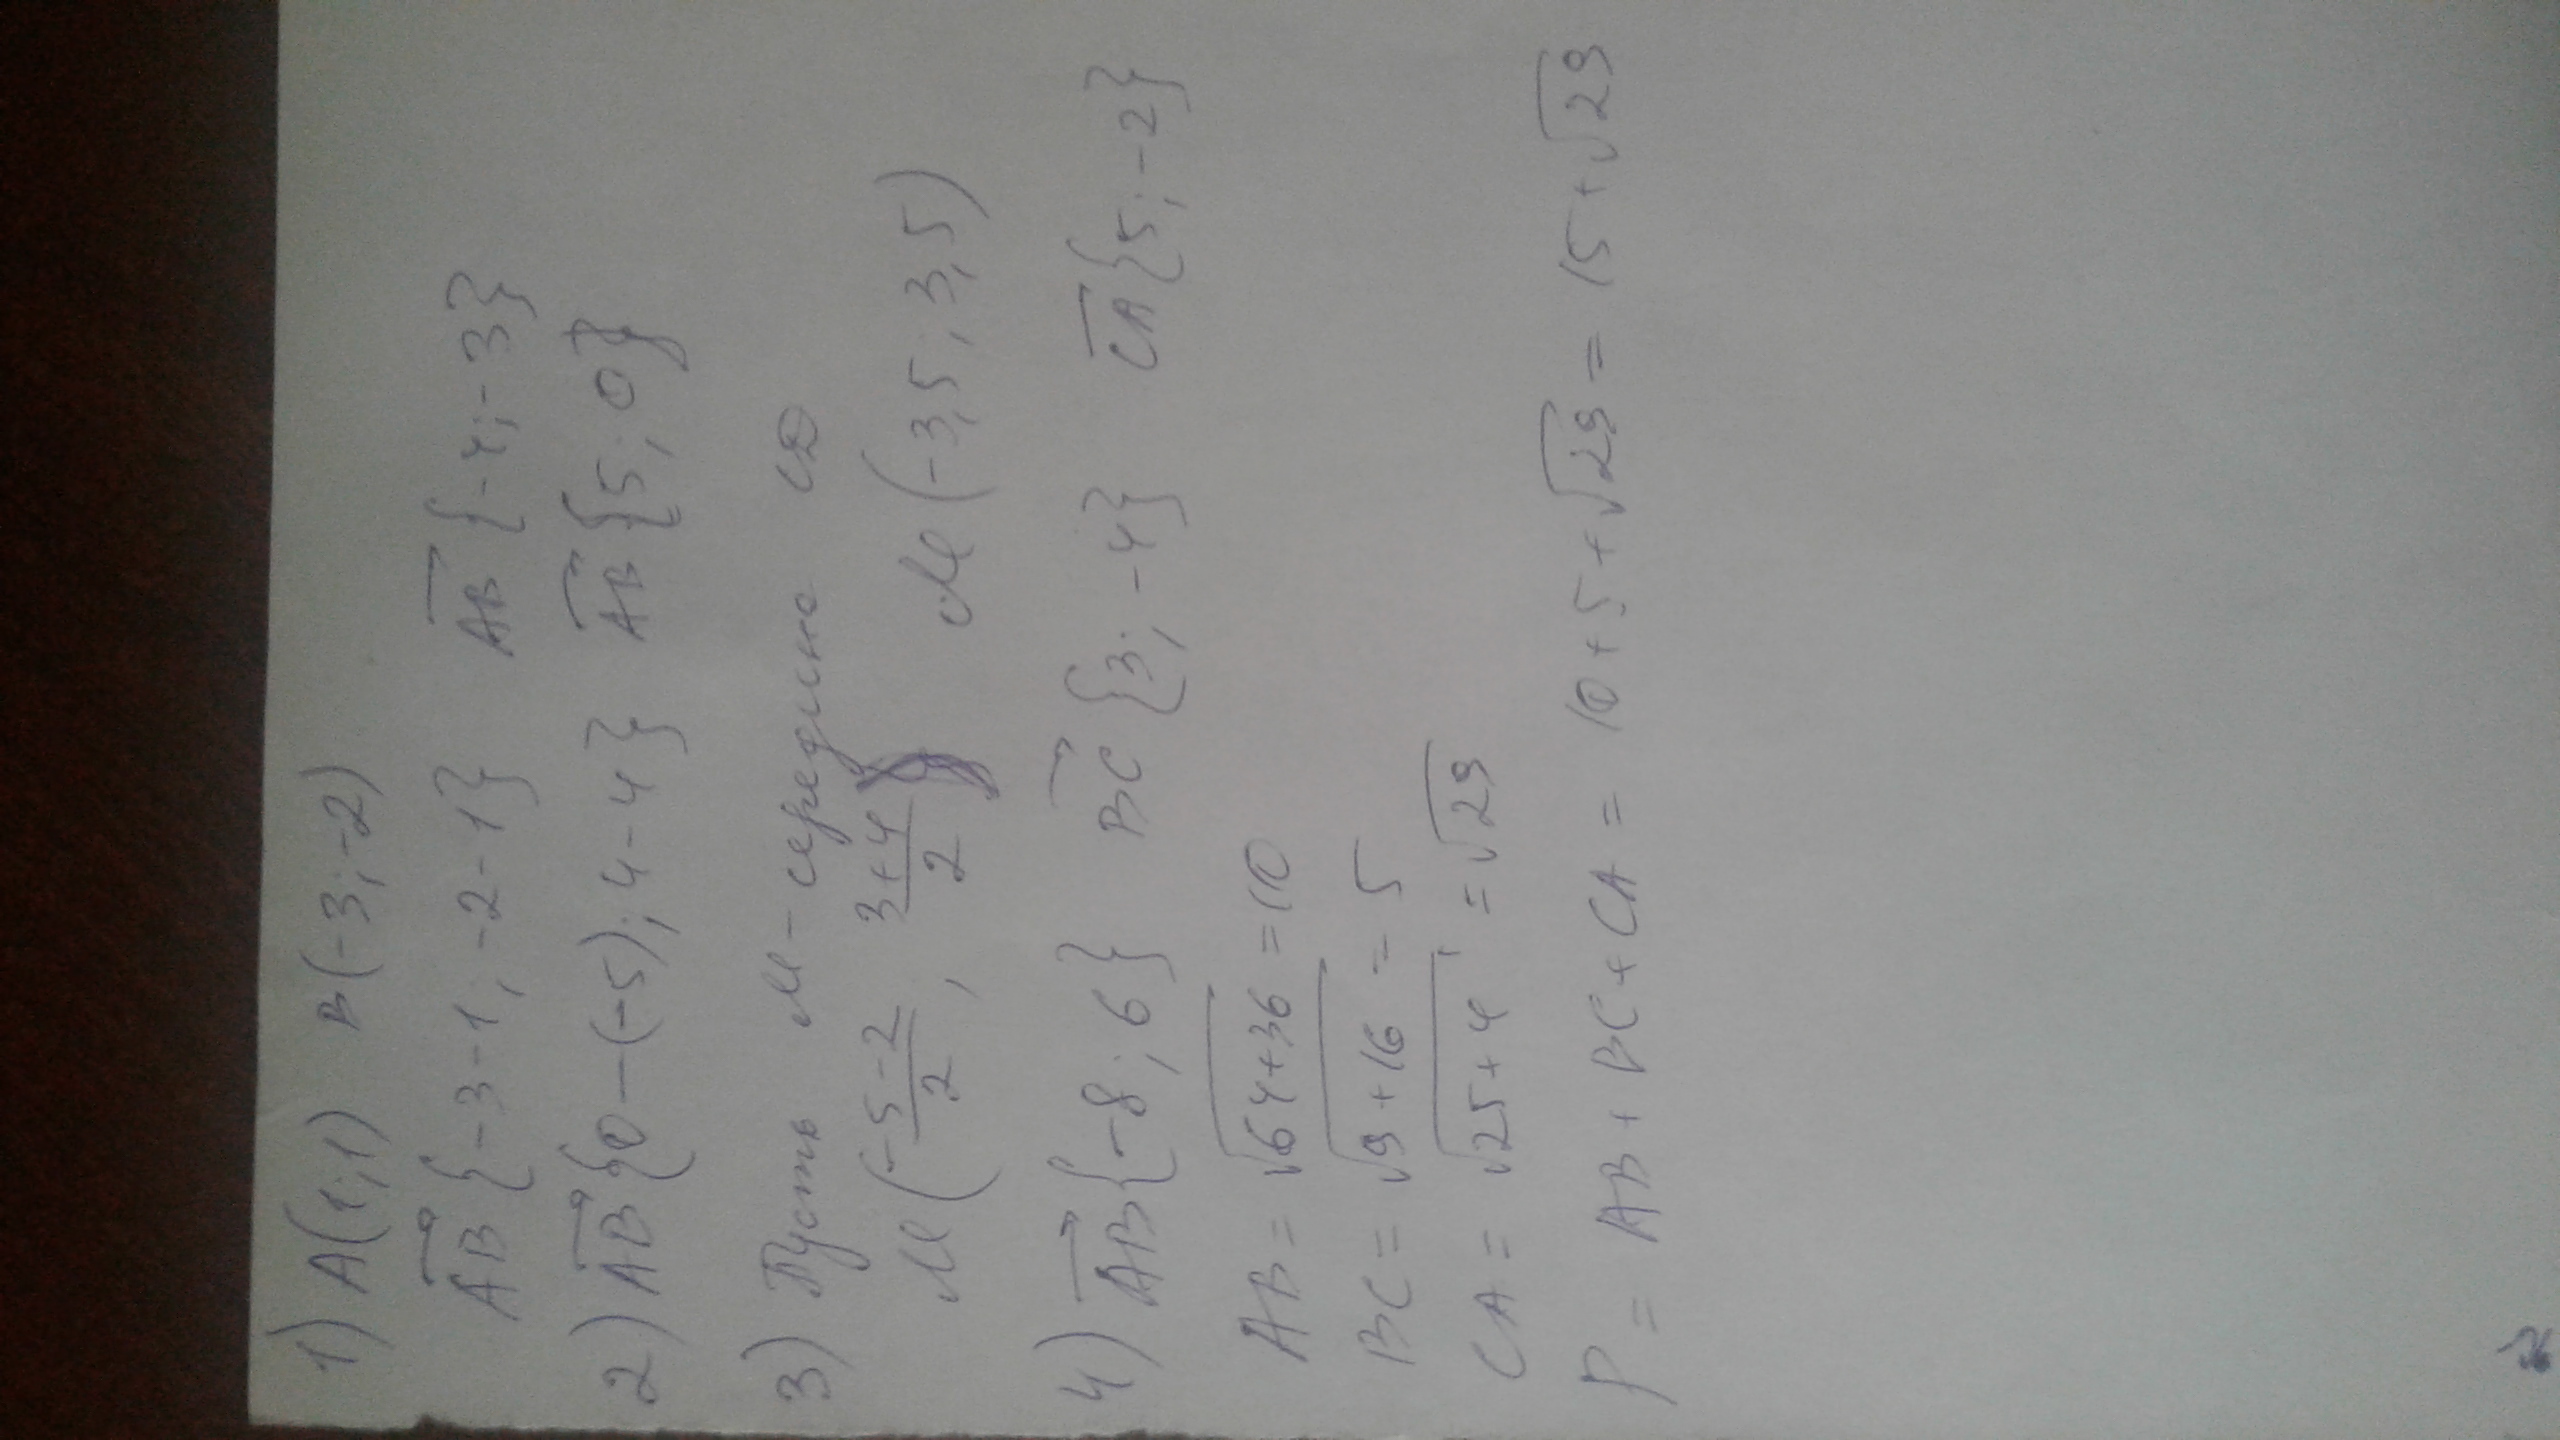 1) A(1;1) B(-3;-2)
AB {-3-1; -2-1} AB {-4;-3}
2) AB {0-(-5); 4-4} AB {5; 0}
3) Пусть M - середина CD
M (-5-2/2 ; 3+4/2) M (-3,5; 3,5)
4) AB {-8; 6} BC {3; -4} CA {5; -2}
AB = √64+36 = 10
BC = √9+16 = 5
CA = √25+4 = √29
P = AB + BC + CA = 10 + 5 + √29 = 15 + √29